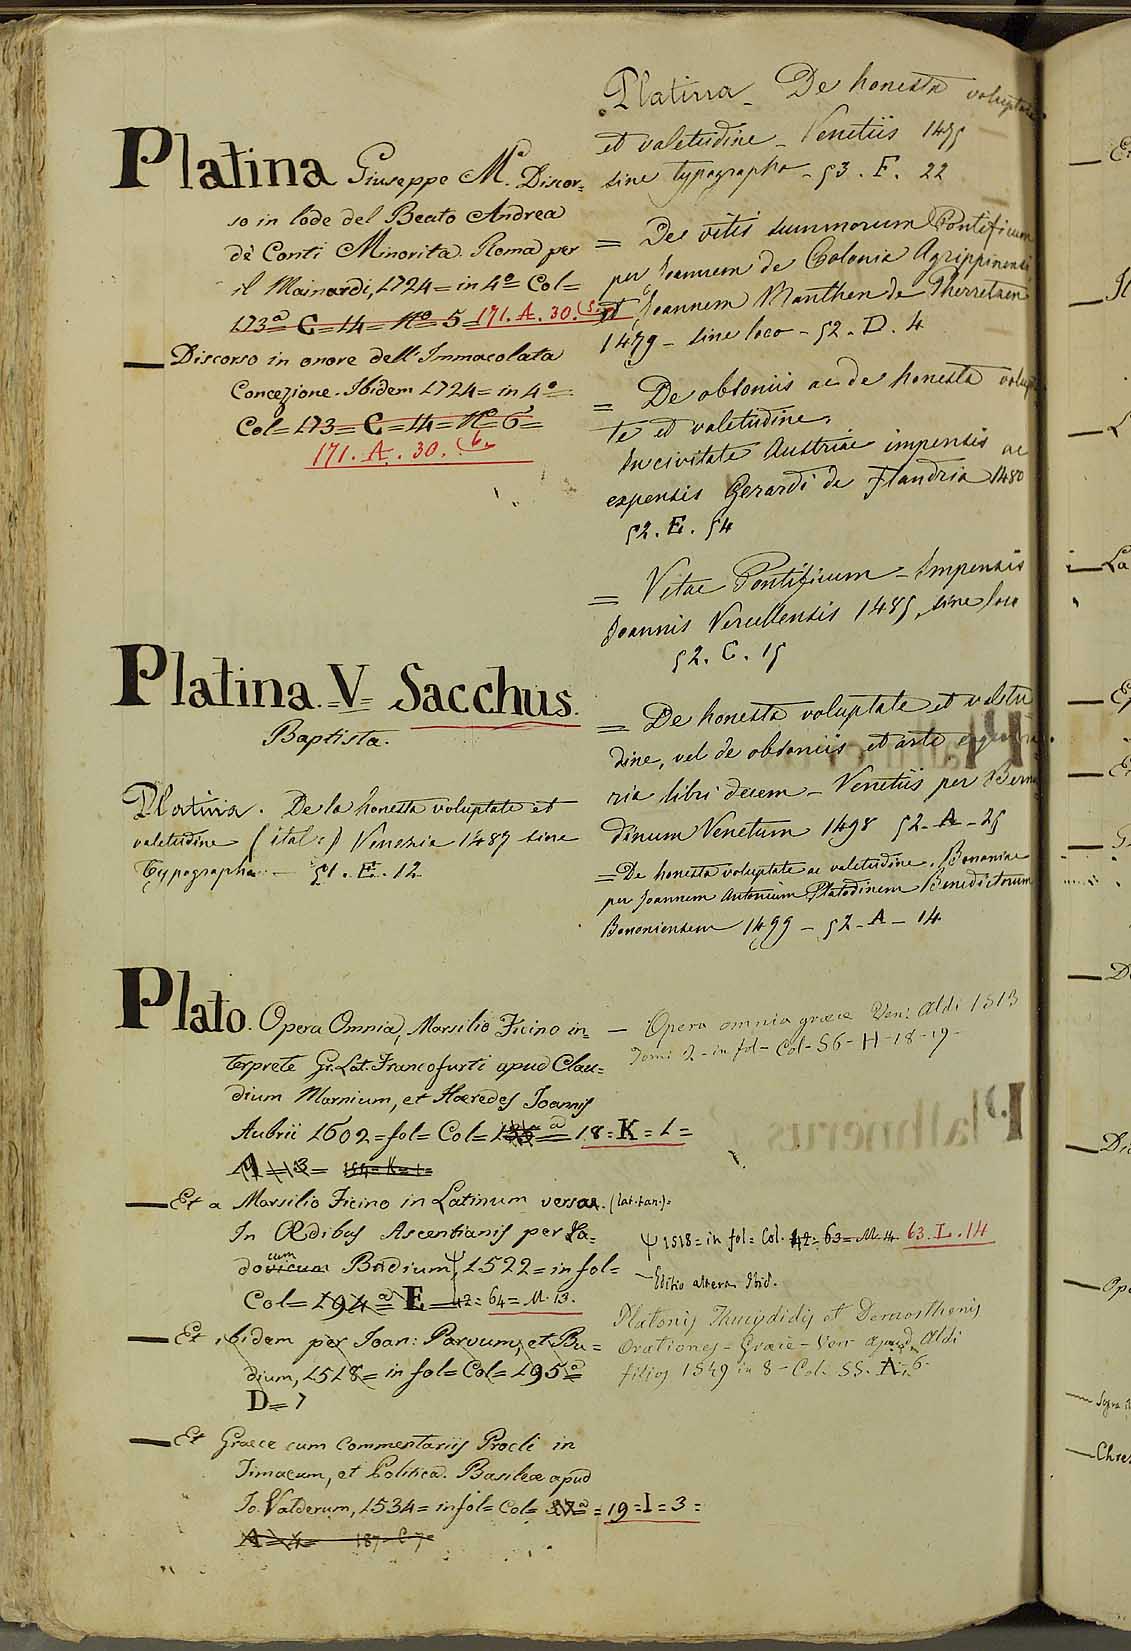 Platina Giuseppe M.ª Discor=
so in lode del Beato Andrea
de Conti Minorita. Roma per
il Mainardi, 1724 = in 4º = Col =
173ª = C = 14 = Nº 5 = 171. A. 30. (5.
— Discorso in onore dell'Immacolata
Concezione. Ibidem 1724 = in 4º =
Col = 173 = C = 14 = Nº 6 =
171. A. 30. (6.
Platina. = V = Sacchus.
Baptista.
Platina. De la honesta voluptate et
valetudine (ital:) Venezia 1487 sine
typographo — 51. E. 12
Plato. Opera Omnia, Marsilio Ficino in=
terprete Gr. Lat. Francofurti apud Clau=
dium Marnium, et Haeredes Joannis
Aubrii 1602 = fol = Col = 18 = K = 1 =
— Et a Marsilio Ficino in Latinum versa. (lat. tan.) =
In Ædibus Ascentianis per
cum
Badium Ψ, 1522 = in fol =
Col = 194ª = E = 42 = 64 = M. 13.
— Et ibidem per Joan: Parvum, et Ba=
dium, 1518 = in fol = Col = 195ª =
D = 7
— Et Graece cum Commentariis Procli in
Timaeum, et Politica. Basileæ apud
Jo. Valderum, 1534 = in fol = Col = = 19 = I = 3 =
187 = C. 7 =
Platina — De honesta voluptate
et valetudine — Venetiis 1475
sine typographo — 53. F. 22
= De vitis summorum Pontificum
per Joannem de Colonia Agrippinensi
et Joannem Manthen de Gherretzem
1479 — sine loco — 52. D. 4
= De obsoniis ac de honesta volup
te et valetudine.
In civitate Austriae impensis ac
expensis Gerardi de Flandria 1480
52. E. 54
= Vitae Pontificum — Impensis
Joannis Vercellensis 1485, sine loco
52. C. 15
= De honesta voluptate et valetu
dine, vel de obsoniis et arte
ria libri decem — Venetiis per Bern
dinum Venetum 1498 52 — A — 25
= De honesta voluptate ac valetudine. Bononiae
per Joannem Antonium Platodinem Benedictorum
Bononiensem 1499 — 52 — A — 14
— Opera omnia græce Ven: Aldi 1513
Tom: 2 — in fol — Col — 56 — H — 18 — 19 —
Ψ 1518 = in fol = Col. 42 = 63 = M. 14 63. L. 14
— Editio altera Ibid.
Platonis Thucydidis et Demosthenis
Orationes — Græce — Ven apud Aldi
filios 1549 in 8 — Col. 55. A. 6.